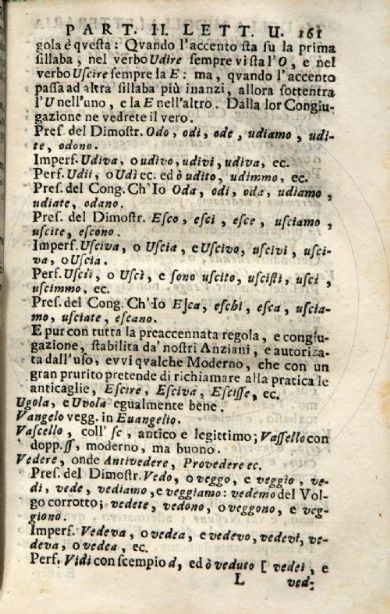 PART. II. LETT. U. 161
gola è qvesta: Qvando l'accento sta su la prima
sillaba, nel verbo Udire sempre vi sta l'O, e nel
verbo Uscire sempre la E: ma, qvando l'accento
passa ad altra sillaba più inanzi, allora sottentra
l'U nell'uno, e la E nell'altro. Dalla lor Congiu-
gazione ne vedrete il vero.
Pres. del Dimostr. Odo, odi, ode, udiamo, udi-
te, odono.
Imperf. Udiva, o udivo, udivi, udiva, ec.
Perf. Udii, o Udì ec. ed ò udito, udimmo, ec.
Pres. del Cong. Ch'Io Oda, odi, oda, udiamo,
udiate, odano.
Pres. del Dimostr. Esco, esci, esce, usciamo,
uscite, escono.
Imperf. Usciva, o Uscia, e Uscivo, uscivi, usci-
va, o Uscia.
Perf. Uscii, o Uscì, e sono uscito, uscisti, uscì,
uscimmo, ec.
Pres. del Cong. Ch'Io Esca, eschi, esca, uscia-
mo, usciate, escano.
E pur con tutta la preaccennata regola, e congiu-
gazione, stabilita da' nostri Anziani, e autoriza-
ta dall'uso, evvi qvalche Moderno, che con un
gran prurito pretende di richiamare alla pratica le
anticaglie, Escire, Esciva, Escisse, ec.
Ugola, e Uvola egualmente bene.
Vangelo vegg. in Euangelio.
Vascello, coll' sc, antico e legittimo; Vassello con
dopp. ss, moderno, ma buono.
Vedere, onde Antivedere, Provedere ec.
Pres. del Dimostr. Vedo, o veggo, e veggio, ve-
di, vede, vediamo, e veggiamo: vedemo del Vol-
go corrotto; vedete, vedono, o veggono, e veg-
giono.
Imperf. Vedeva, o vedea, e vedevo, vedevi, ve-
deva, o vedea, ec.
Perf. Vidi con scempio d, ed ò veduto [ vedei, e
L ved-